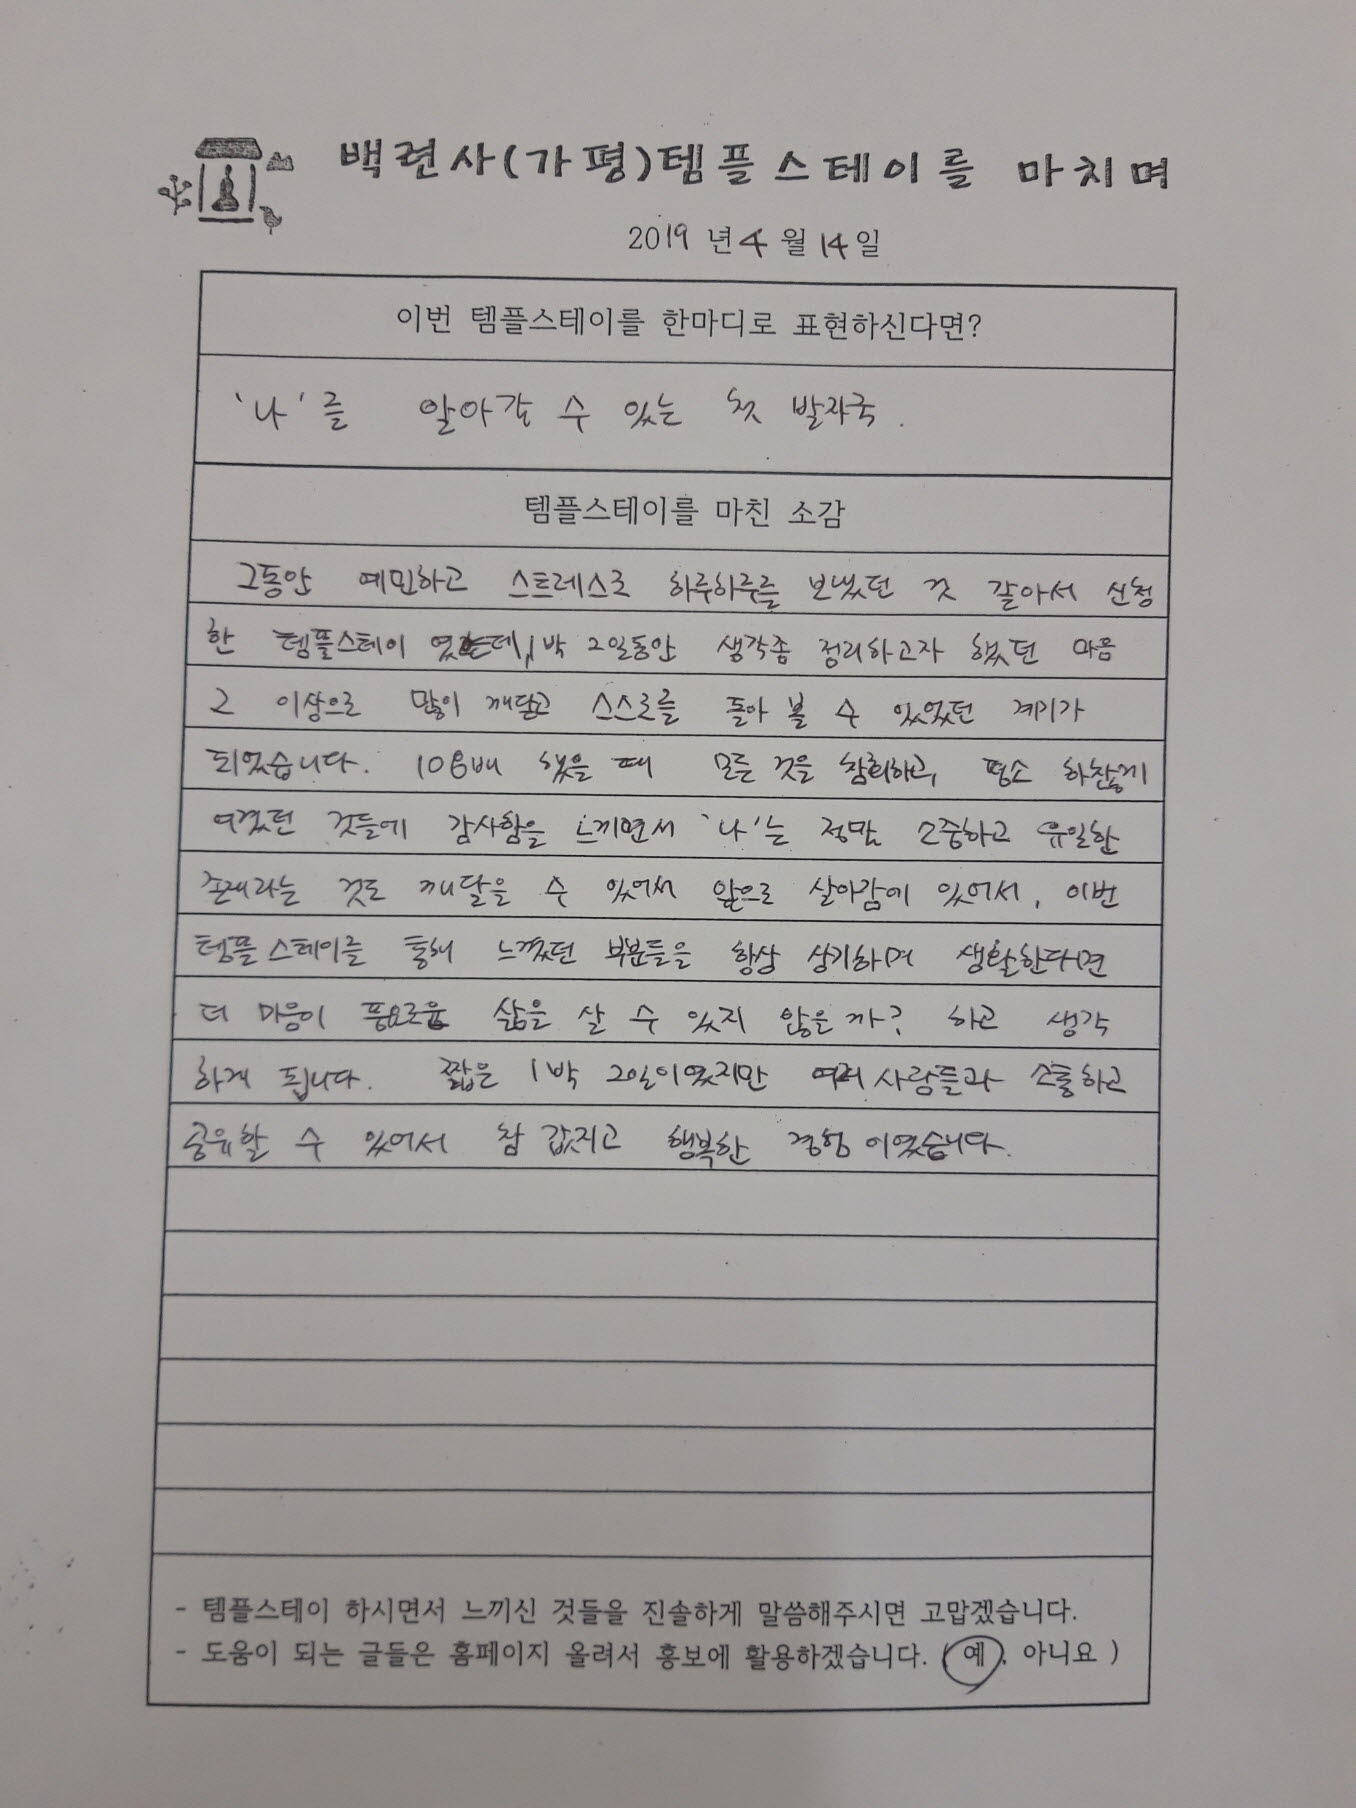 백련사(가평)템플스테이를 마치며
2019 년 4 월 14 일
이번 템플스테이를 한마디로 표현하신다면?
'나'를 알아갈 수 있는 첫 발자국.
템플스테이를 마친 소감
그동안 예민하고 스트레스로 하루하루를 보냈던 것 같아서 신청
한 템플스테이 였는데, 1박 2일동안 생각좀 정리하고자 했던 마음
그 이상으로 많이 깨닫고 스스로를 돌아 볼 수 있었던 계기가
되었습니다. 108배 했을 때 모든 것을 참회하고, 평소 하찮게
여겼던 것들에 감사함을 느끼면서 '나'는 정말 소중하고 유일한
존재라는 것도 깨달을 수 있어서 앞으로 살아감에 있어서, 이번
템플스테이를 통해 느꼈던 부분들을 항상 상기하며 생활한다면
더 마음이 풍요로움 삶을 살 수 있지 않을까? 하고 생각
하게 됩니다. 짧은 1박 2일이였지만 여러 사람들과 소통하고
공유할 수 있어서 참 값지고 행복한 경험 이였습니다.
- 템플스테이 하시면서 느끼신 것들을 진솔하게 말씀해주시면 고맙겠습니다.
- 도움이 되는 글들은 홈페이지 올려서 홍보에 활용하겠습니다. ( 예 , 아니요 )